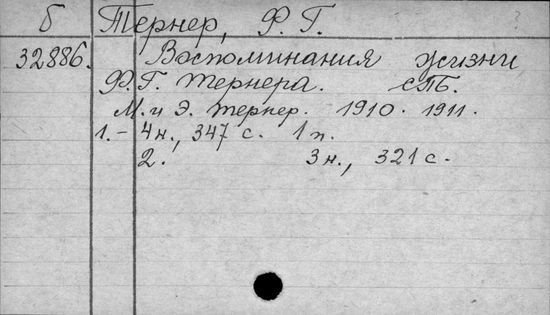 б Тернер, Ф. Г.
32886. Воспоминания жизни
Ф. Г. Тернера. СПБ.
М. и Э. Тернер. 1910. 1911.
1. – 4 н., 347 с. 1 п.
2. 3 н., 321 с.